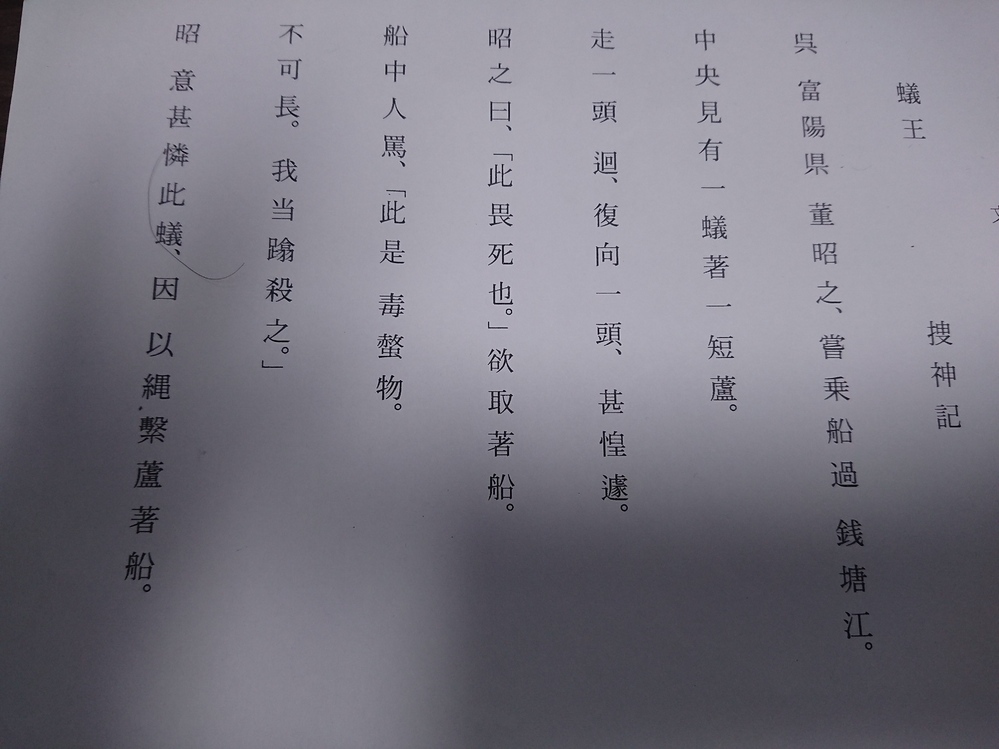 捜神記
蟻王
呉富陽県董昭之、嘗乗船過銭塘江。
中央見有一蟻著一短蘆。
走一頭迴、復向一頭、甚惶遽。
昭之曰、「此畏死也。」欲取著船。
船中人罵、「此是毒螫物。
不可長。我当蹹殺之。」
昭意甚憐此蟻、因以縄繫蘆著船。